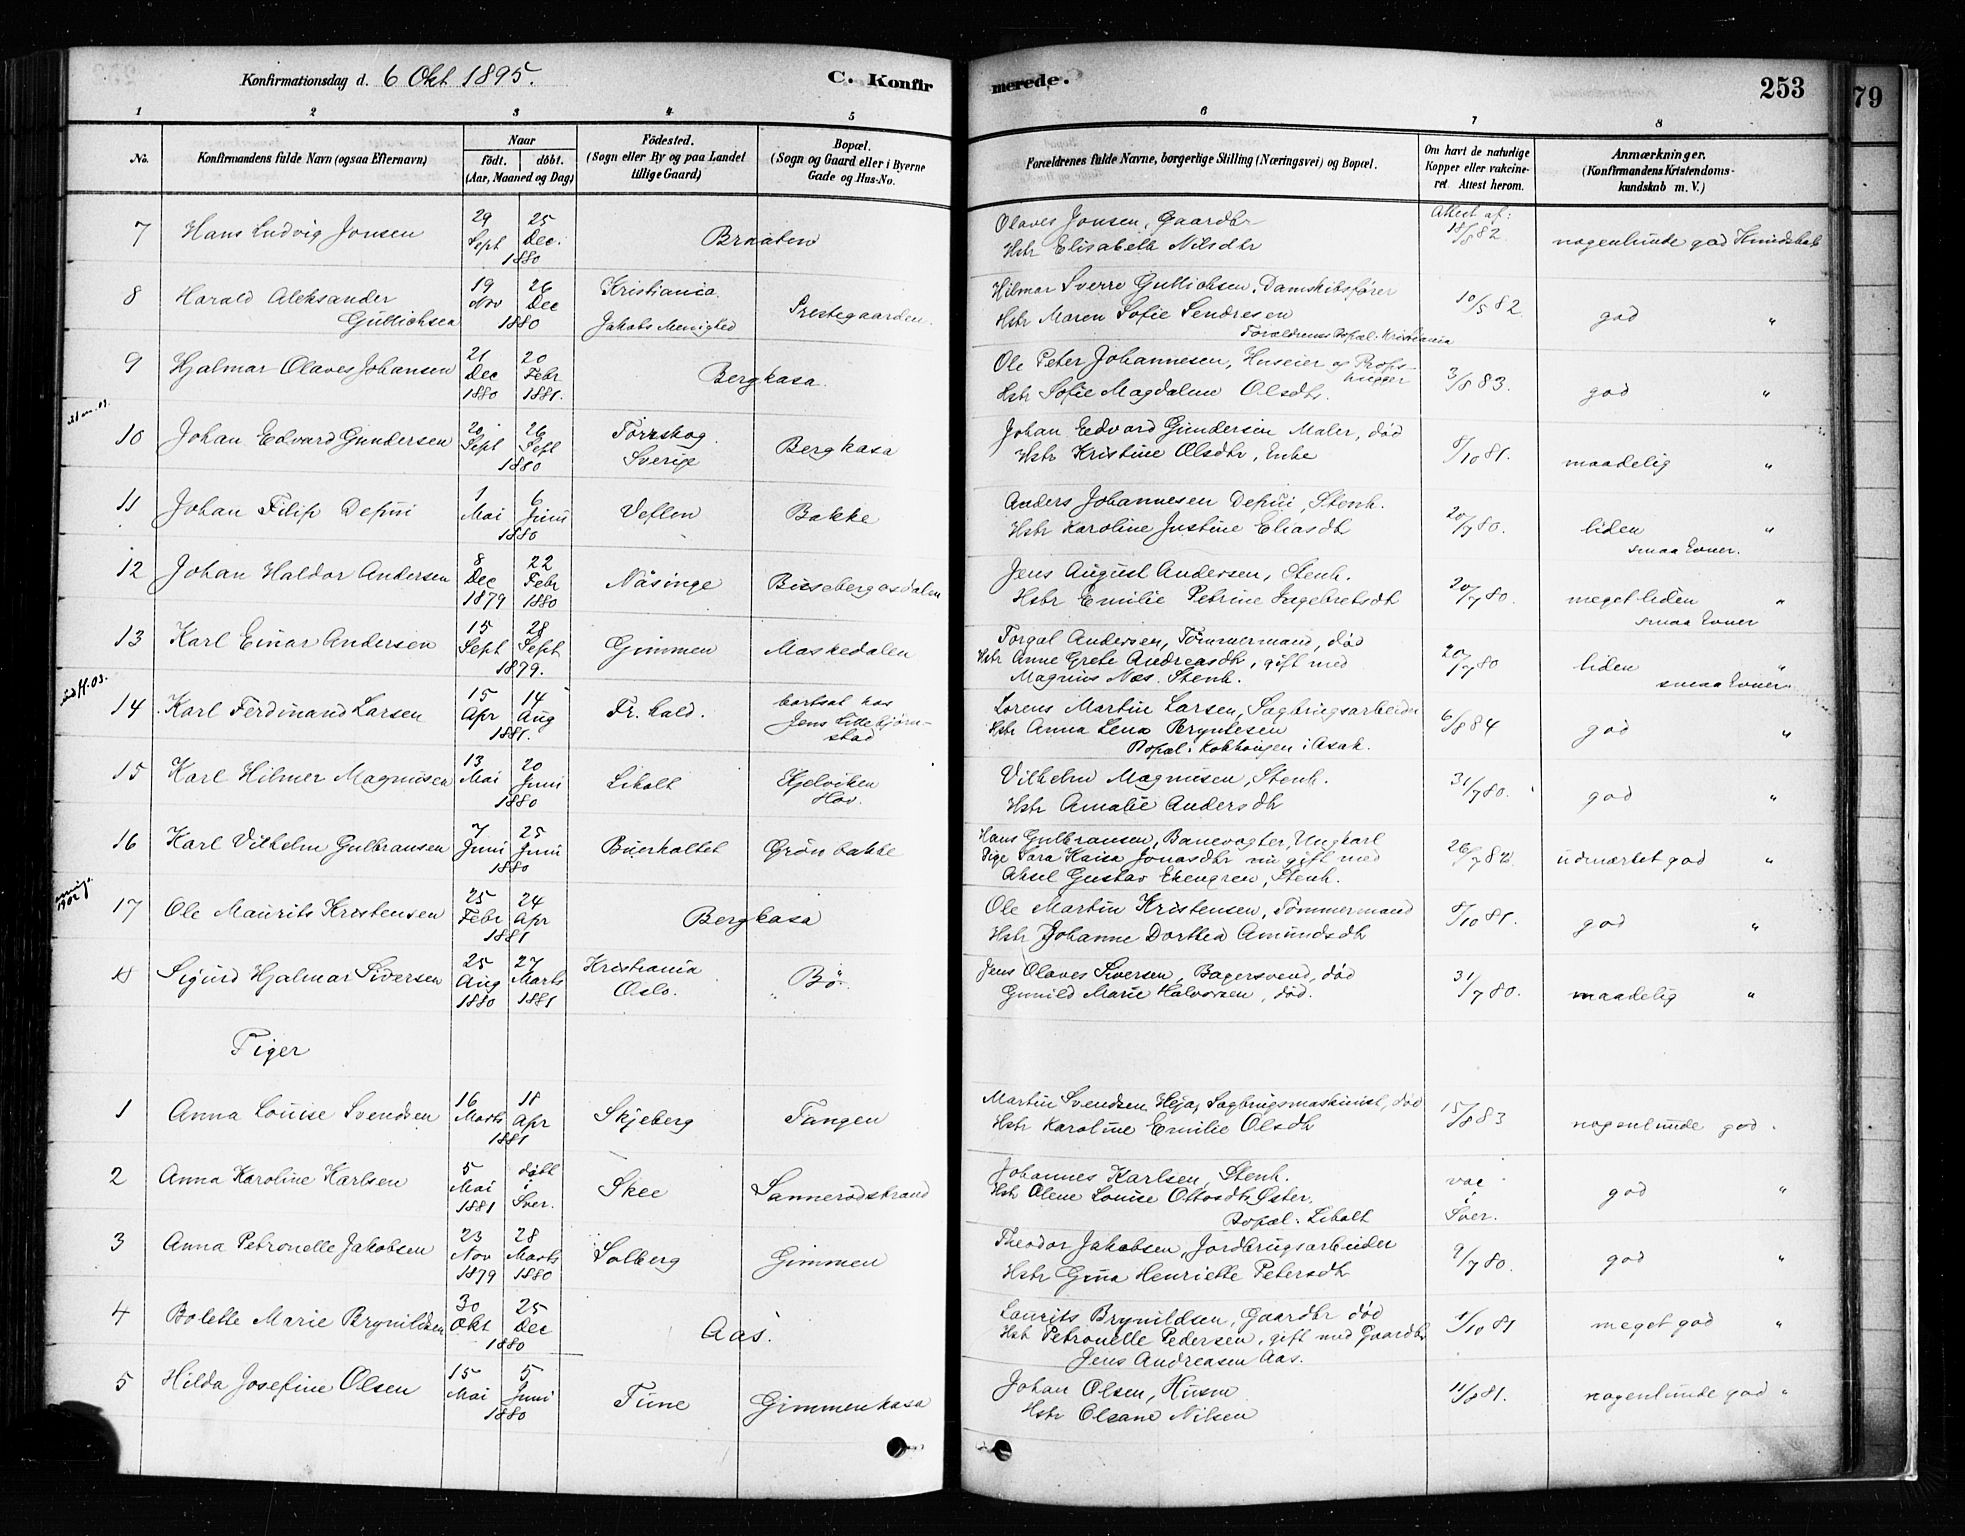 Konfirmationsdag d. 6 Okt 1895.
C. Konfirmerede.
253
79
1 2 3 4 5 6 7 8
No.
Konfirmandens fulde Navn (ogsaa Efternavn)
Naar
født. døbt.
(Aar, Maaned og Dag)
Fødested.
(Sogn eller By og paa Landet
tillige Gaard)
Bopæl.
(Sogn og Gaard eller i Byerne
Gade og Hus-No.
Forældrenes fulde Navne, borgerlige Stilling (Næringsvei) og Bopæl.
Om havt de naturlige
Kopper eller vakcine-
ret Attest herom.
Anmærkninger.
(Konfirmandens Kristendoms-
kundskab m. V.)
7 Hans Ludvig Jonsen 29 Sept 25 Dec. 1880 Braaten
Olaves Jonsen, Gaardbr
Hstr Elisabeth Nilsdtr
Attest af: 18/8 82. nogenlunde god Kundskab
8 Harald Aleksander
Gullichsen 19 Nov 26 Dec 1880 Kristiania
Jakobs Menighed Prestegaarden.
Hilmar Sverre Gullichsen, Damskibsfører
Hstr Maren Sofie Sendresen
Forældrenes Bopæl: Kristiania
10/5 82 god "
9 Hjalmar Olaves Johansen 21 Dec 1880 20 Febr 1881. Bergkasa.
Ole Peter Johannesen, Huseier og Props-
hugger
Hstr Sofie Magdalene Olsdtr.
3/8 83. god "
10 Johan Edvard Gundersen 20 Sept 26 Sept 1880 Torrskog
Sverige Bergkasa
Johan Edvard Gundersen Maler, død
Hstr Kristine Olsdtr, Enke
8/10 81. maadelig "
11 Johan Filip Depui 1 Mai 6 Juni 1880 Veflen Bakke
Anders Johannesen Depui, Stenh.
Hstr Karoline Justine Eliasdtr
20/7 80. liden "
smaa Evner.
12 Johan Haldor Andersen 8 Dec 1879 22 Febr 1880 Näsinge Bissebergsdalen
Jens August Andersen, Stenh.
Hstr Emilie Petrine Ingebretsdtr
20/7 80. meget liden "
smaa Evner
13 Karl Einar Andersen 15 Sept 28 Sept 1879. Gimmen Maskedalen
Torgal Andersen, Tømmermand, død
Hstr Anne Grete Andreasdtr, gift med
Magnus Næs. Stenh.
20/7 80 liden "
smaa Evner.
14 Karl Ferdinand Larsen 15 Apr 14 Aug 1881. Fr.hald. bortsat hos
Jens Lillebjørn-
stad
Lorens Martin Larsen, Sagbrugsarbeider
Hstr Anna Lena Bryntesen
Bopæl: Kokhaugen i Asak.
6/8 84 god "
15 Karl Hilmer Magnusen 13 Mai 20 Juni 1880 Liholt Kjelviken
Hov.
Vilhelm Magnusen, Stenh.
Hstr Amalie Andersdtr
31/7 80. god "
16 Karl Vilhelm Gulbransen 7 Juni 25 Juni 1880 Buerholtet Grønbakke
Hans Gulbransen, Banevogter, Ungkarl
Pige Sara Kaisa Jonasdtr nu gift med
Aksel Gustav Ekengren, Stenh.
26/7 82. udmærket god "
17 Ole Maurits Kristensen 25 Febr 24 Apr 1881 Bergkasa
Ole Martin Kristensen, Tømmermand
Hstr Johanne Dorthea Amundsdtr
8/10 81. god "
18 Sigurd Hjalmar Siversen 25 Aug 1880 27 Marts 1881 Kristiania
Oslo. Bø
Jens Olaves Siversen, Bagersvend, død
Gunild Marie Halvorsen, død.
31/7 80. maadelig "
Piger
1 Anna Louise Svendsen 16 Marts 18 Apr 1881 Skjeberg Tangen
Martin Svendsen Heja, Sagbrugsmaskinist, død
Hstr Karoline Emilie Olsdtr
15/8 83 nogenlunde god
2 Anna Karoline Karlsen 5 Mai 1881 døbt i Sver. Skee Sannerødstrand
Johannes Karlsen, Stenh.
Hstr Olene Louise Ottosdtr Øster.
Bopæl: Liholt
vac i Sver. god "
3 Anna Petronelle Jakobsen 23 Nov 1879 28 Marts 1880 Solberg Gimmen
Theodor Jakobsen, Jordbrugsarbeider
Hstr Gina Henriette Petersdtr
9/7 80. god "
4 Bolette Marie Brynildsen 30 Okt 25 Dec 1880 Aas.
Laurits Brynildsen, Gaardbr død
Hstr Petronelle Pedersen, gift med Gaardbr
Jens Andreasen Aas.
1/10 81 meget god "
5 Hilda Josefine Olsen 15 Mai 5 Juni 1880 Tune Gimmenkasa
Johan Olsen, Husm
Hstr Olsane Nilsen
11/8 81. nogenlunde god "